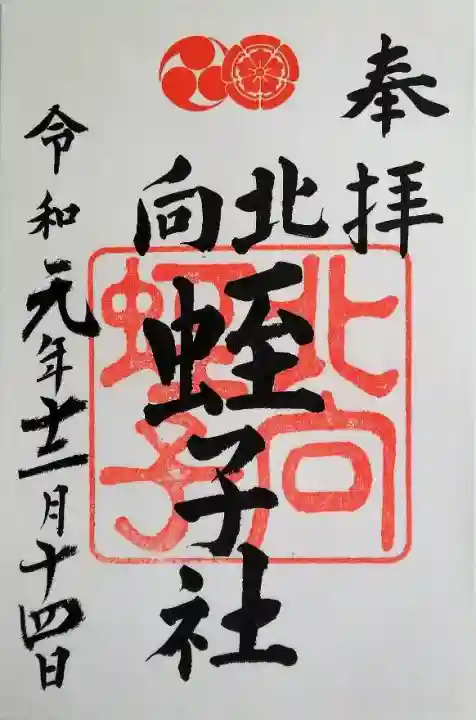 奉拝
北向
蛭子社
令和元年十二月十四日
北向
蛭子